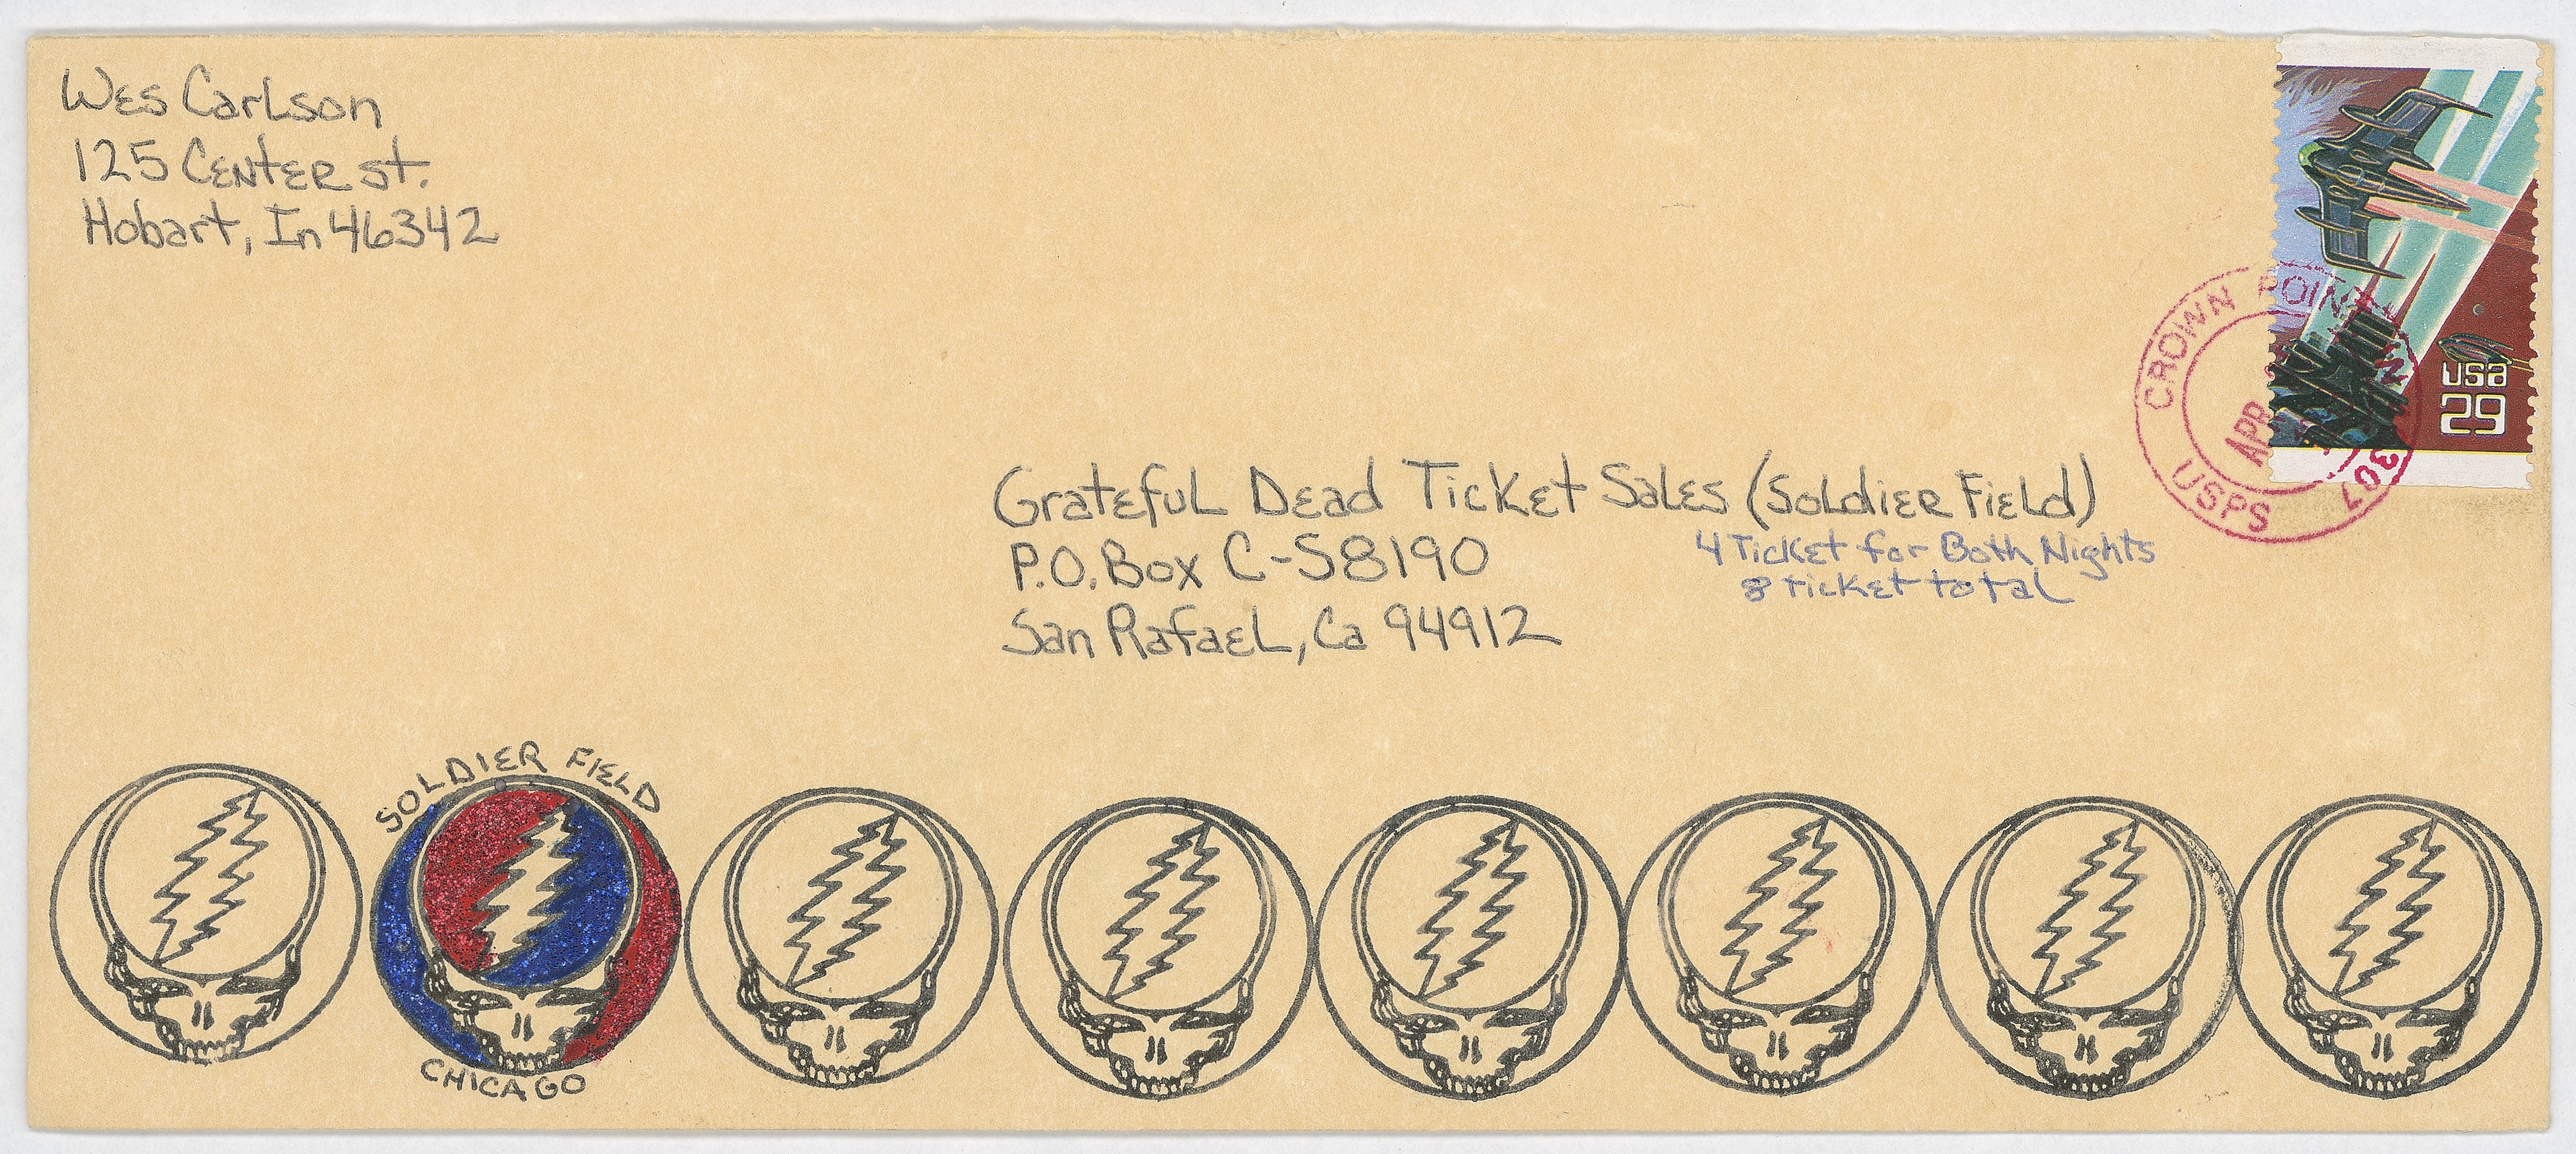 Wes Carlson
125 Center st.
Hobart, In 46342
usa
29
CROWN POINT
APR
USPS
307
Grateful Dead Ticket Sales (Soldier Field)
P.O. Box C-S8190
San Rafael, Ca 94912
4 Ticket for Both Nights
8 ticket total
SOLDIER FIELD
CHICAGO